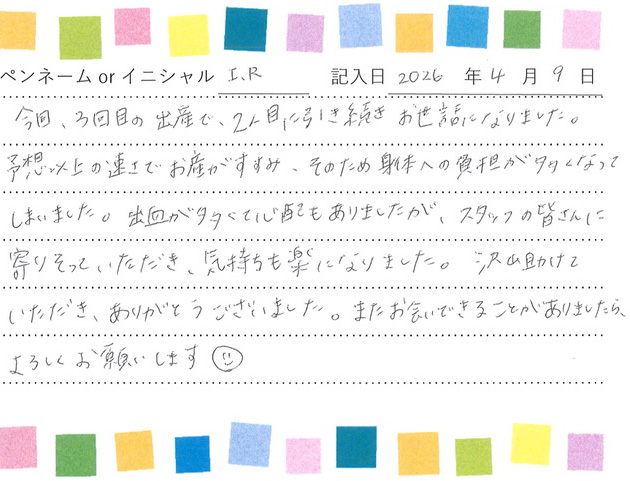 ペンネーム or イニシャル I.R 記入日 2026 年 4 月 9 日
今回、3回目の出産で、2人目に引き続きお世話になりました。
予想以上の速さでお産がすすみ、そのため身体への負担が多くなって
しまいました。出血が多くて心配もありましたが、スタッフの皆さんに
寄りそっていただき、気持ちも楽になりました。沢山助けて
いただき、ありがとうございました。またお会いできることがありましたら、
よろしくお願いします☺